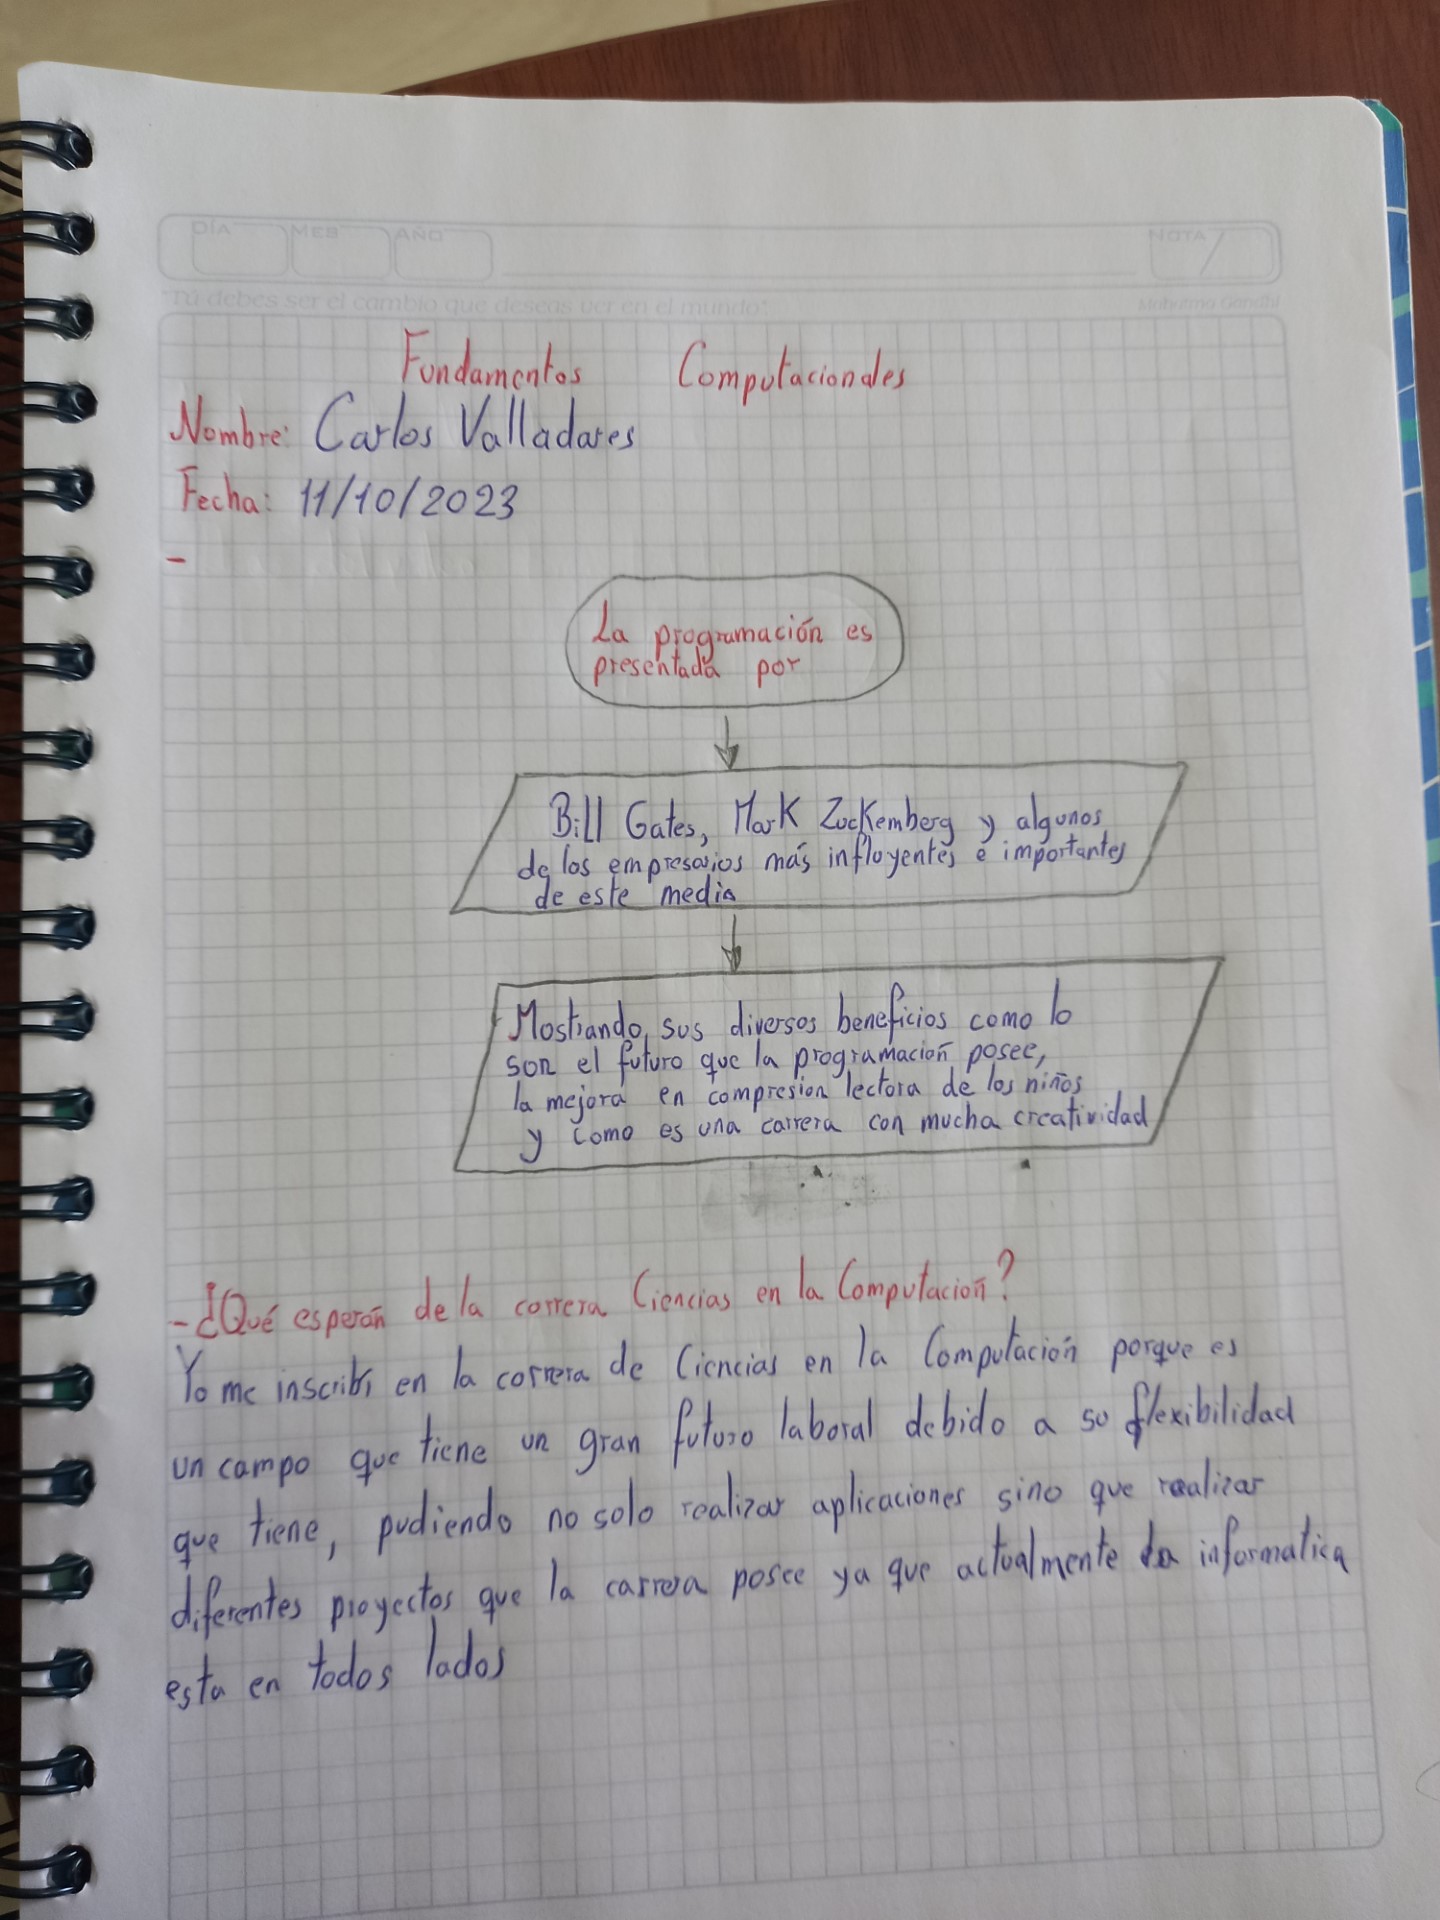 DÍA MES AÑO NOTA
"Tú debes ser el cambio que deseas ver en el mundo" Mahatma Gandhi
Fundamentos Computacionales
Nombre: Carlos Valladares
Fecha: 11/10/2023
-
La programación es
presentada por
Bill Gates, Mark Zuckemberg y algunos
de los empresarios más influyentes e importantes
de este medio
Mostrando sus diversos beneficios como lo
son el futuro que la programación posee,
la mejora en compresion lectora de los niños
y como es una carrera con mucha creatividad
- ¿Qué esperán de la carrera Ciencias en la Computación?
Yo me inscribi en la carrera de Ciencias en la Computación porque es
un campo que tiene un gran futuro laboral debido a su flexibilidad
que tiene, pudiendo no solo realizar aplicaciones sino que realizar
diferentes proyectos que la carrera posee ya que actualmente la informatica
esta en todos lados